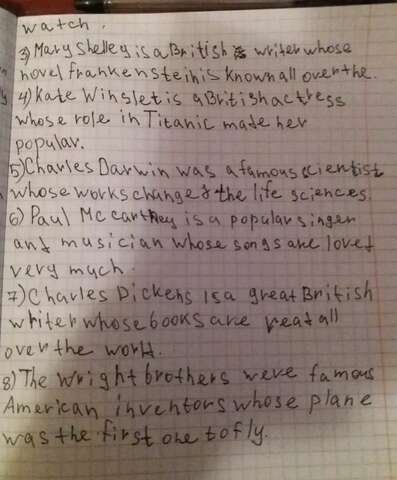 watch.
3) Mary Shelley is a British writer whose
novel frankenstein is known all over the.
4) Kate Winslet is a British actress
whose role in Titanic made her
popular.
5) Charles Darwin was a famous scientist
whose works changed the life sciences.
6) Paul Mc carthey is a popular singer
and musician whose songs are loved
very much.
7) Charles Dickens is a great British
writer whose books are read all
over the world.
8) The Wright brothers were famous
American inventors whose plane
was the first one to fly.